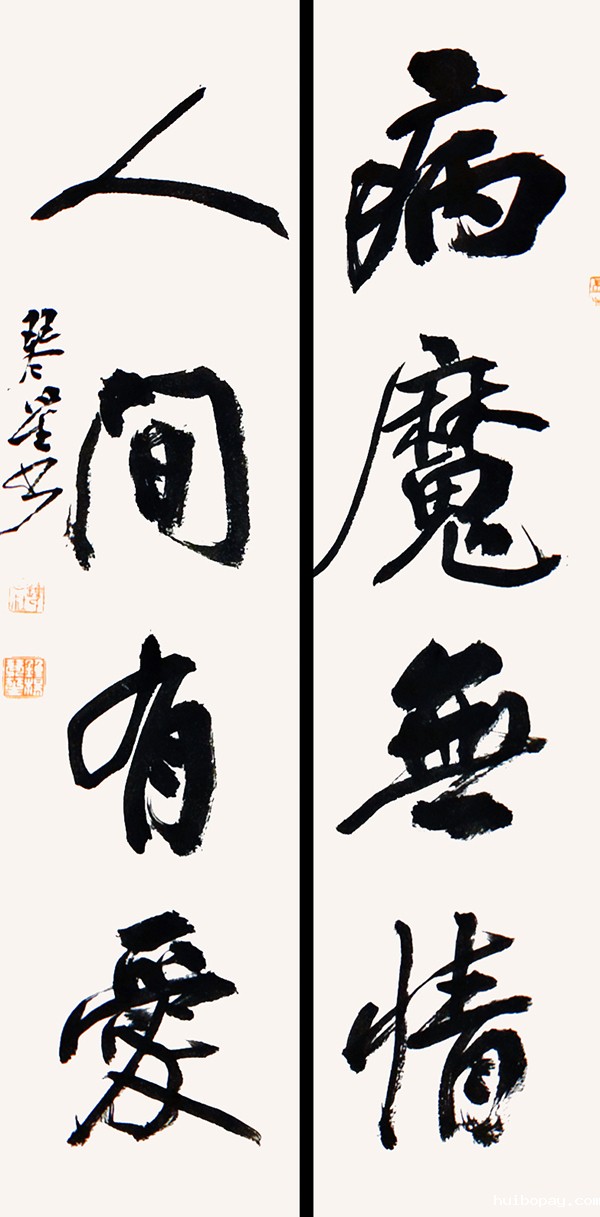 病魔無情
人間有愛
琴星书
huibopay.com